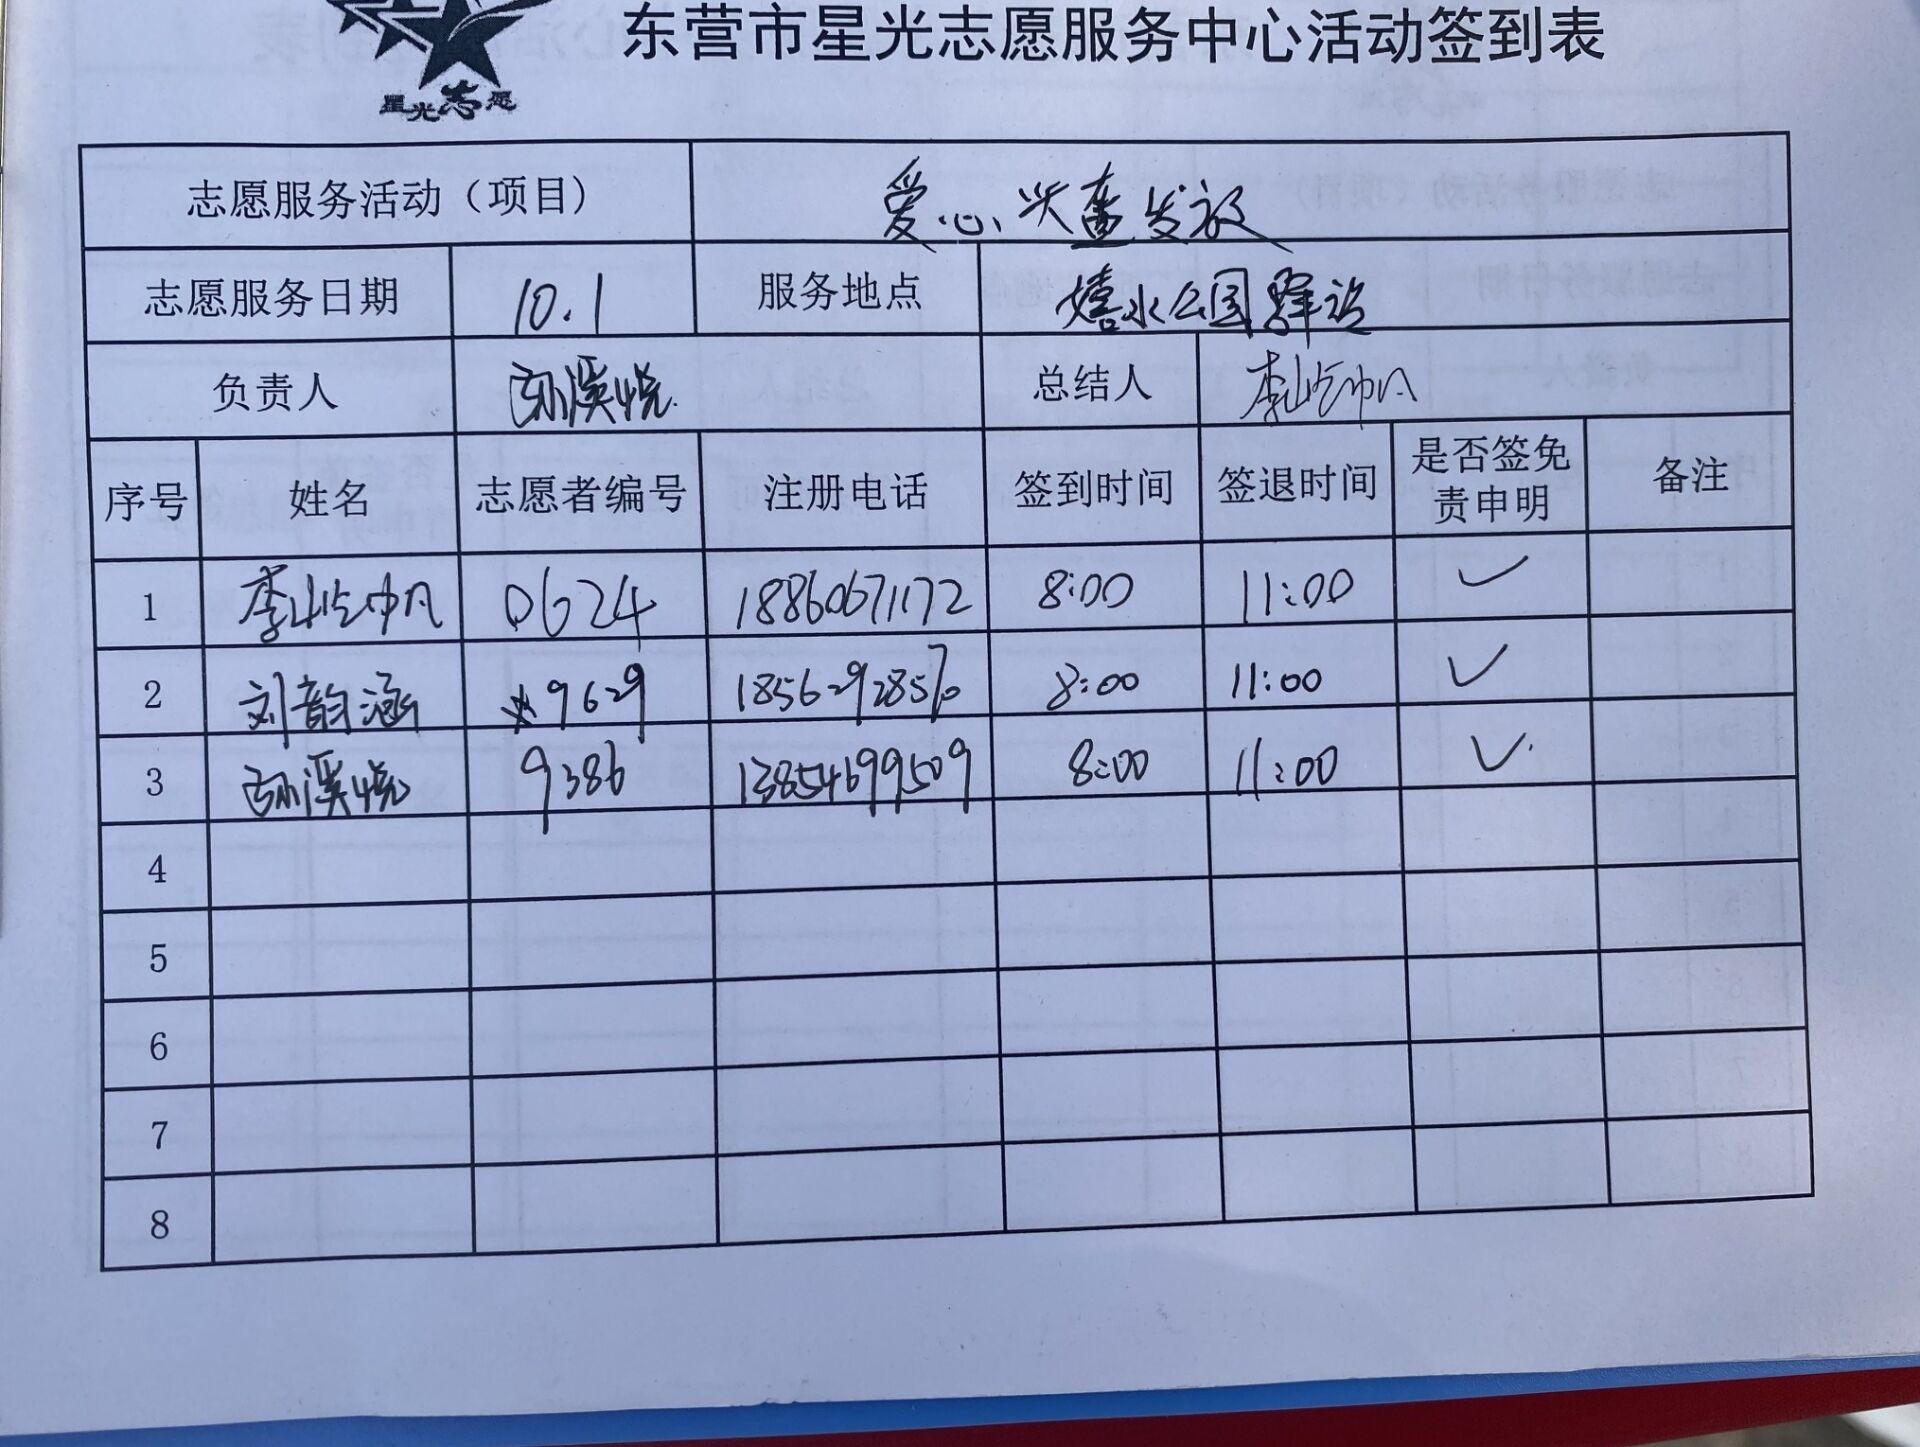 东营市星光志愿服务中心活动签到表
星光志愿
志愿服务活动（项目） 爱心 发放
志愿服务日期 10.1 服务地点 嬉水公园驿站
负责人 孙溪悦 总结人 李屹帆
序号 姓名 志愿者编号 注册电话 签到时间 签退时间 是否签免责申明 备注
1 李屹帆 0624 18860671172 8:00 11:00 ✓
2 刘韵涵 9629 8:00 11:00 ✓
3 孙溪悦 9386 13854699509 8:00 11:00 ✓
4
5
6
7
8